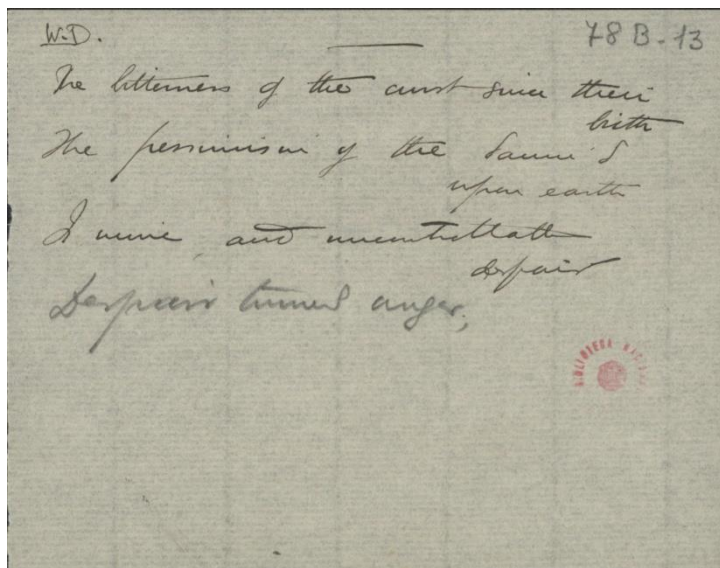 W.D.
78 B-13
The bitterness of the curst since their
birth
The pessimism of the damn'd
upon earth
Is mine, and uncontrollable
despair
Despair turned anger,
BIBLIOTECA NACIONAL